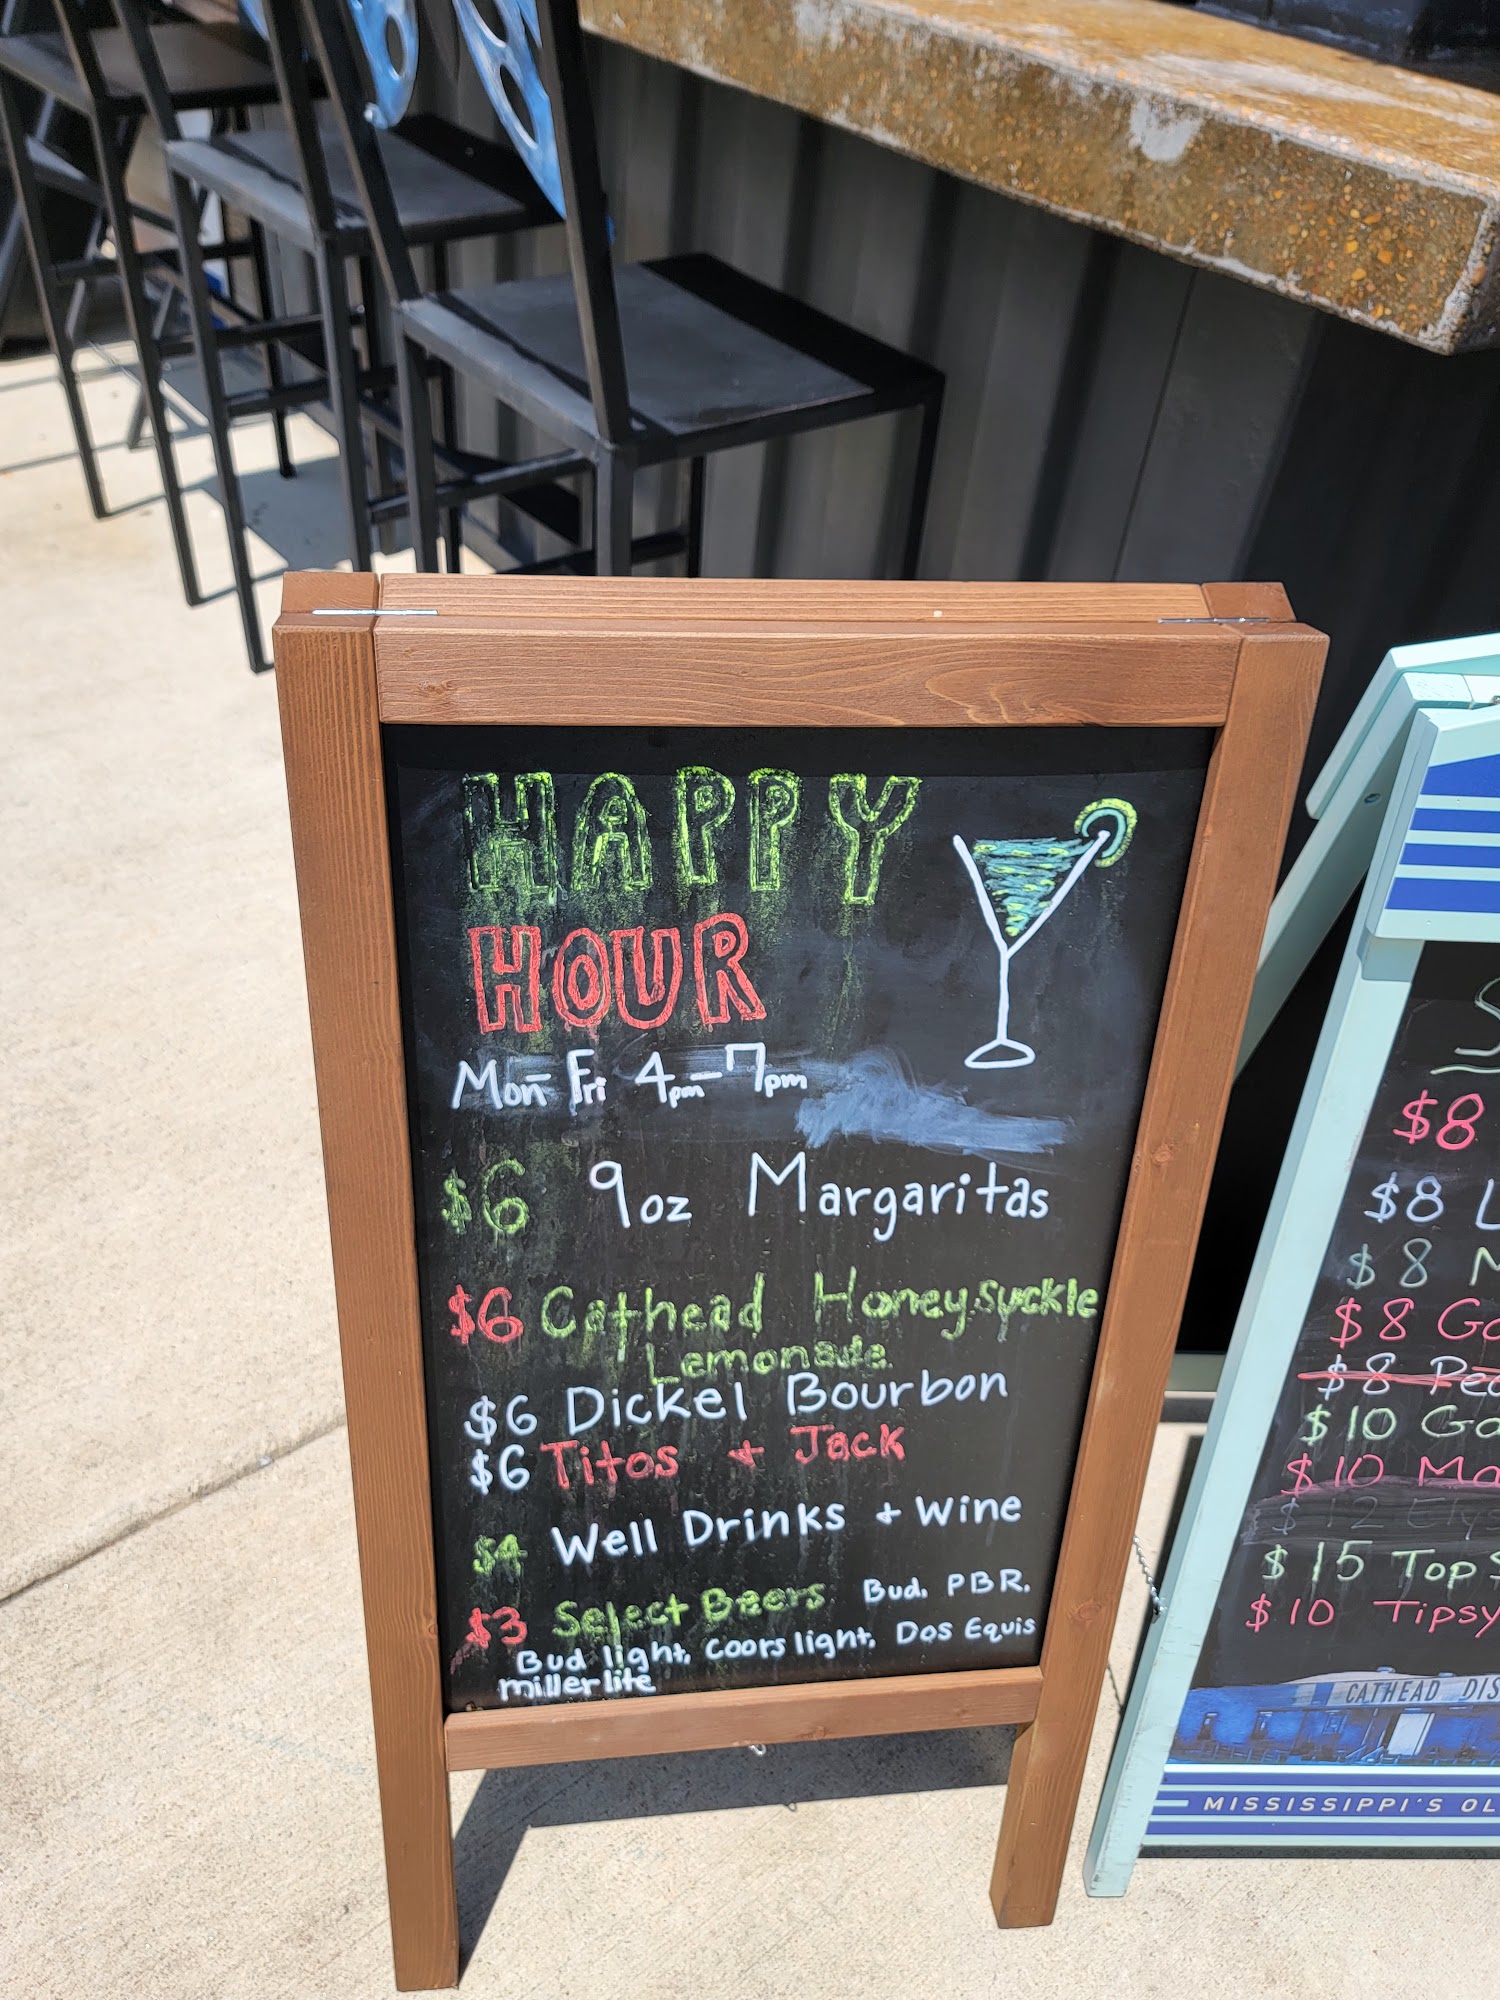 HAPPY
HOUR
Mon-Fri 4pm-7pm
$6 9oz Margaritas
$6 Cathead Honeysuckle
Lemonade
$6 Dickel Bourbon
$6 Titos + Jack
$4 Well Drinks + Wine
$3 Select Beers Bud. PBR.
Bud light, Coors light, Dos Equis
miller lite
$8
$8
$8
$8
$8
$10
$10
$12
$15 Top
$10 Tipsy
CATHEAD
MISSISSIPPI'S